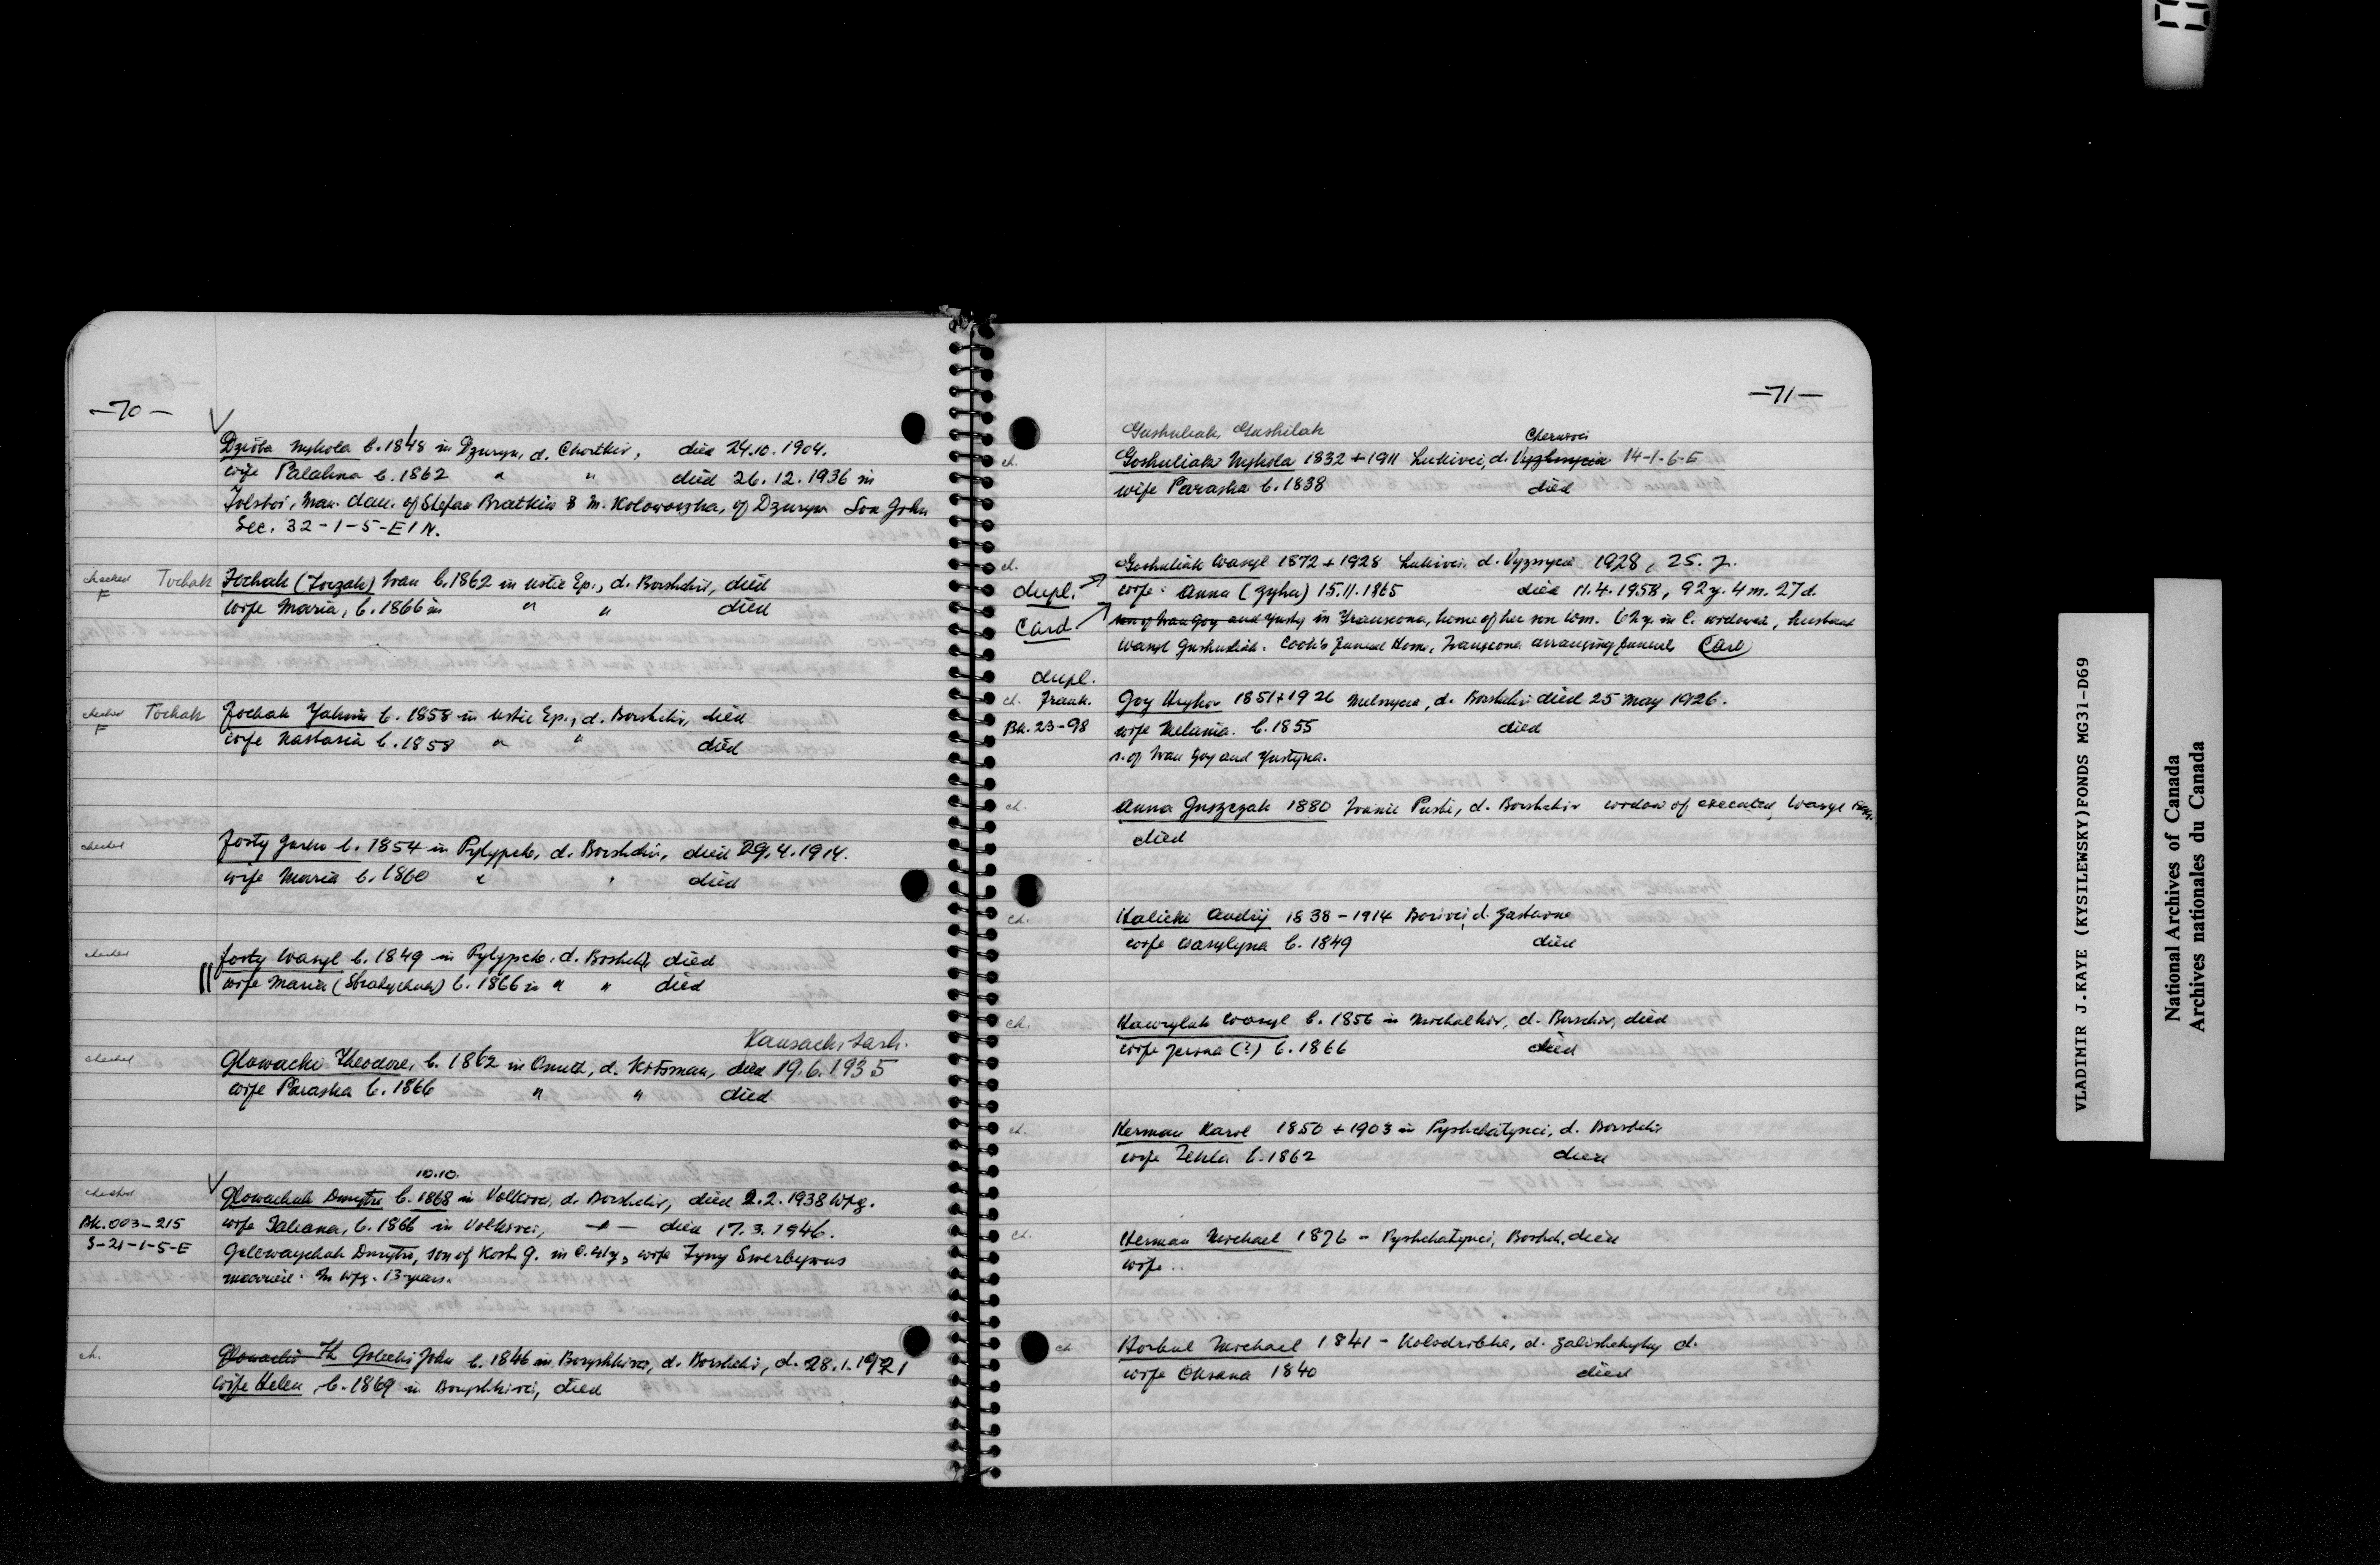 —70—
Dzioba Mykola b. 1848 in Dzuryn, d. Chortkiv, died 24.10.1904.
wife Palahna b. 1862 " " died 26.12.1936 in
Tolstoi, Man. dau. of Stefan Bratkiw & M. of Dzuryn Son John
Sec. 32-1-5-E1N.
checked F Tochak (Toczak) Ivan b. 1862 in Ustie Ep., d. Borshchiv, died
Tochak
wife Maria, b. 1866 in " " died
checked F Tochak Yakim b. 1858 in Ustie Ep., d. Borshchiv, died
Tochak
wife Nastasia b. 1858 " " died
checked Forty b. 1854 in Pylypche, d. Borshchiv, died 29.4.1914.
wife Maria b. 1860 " " died
checked Forty Wasyl b. 1849 in Pylypche, d. Borshchiv died
wife Maria b. 1866 in " " died
Kamsack, Sask.
checked Glowacki Theodore, b. 1862 in Onut, d. Kitsman, died 19.6.1935
wife Paraska b. 1866 " " died
10.10.
checked Glowachuk Dmytro b. 1868 in Volkivci, d. Borshchiv, died 2.2.1938 Wpg.
Bk. 003-215 wife Tatiana, b. 1866 in Volkivci, —"— died 17.3.1946.
S-21-1-5-E Golowaychuk Dmytro, son of Kost G. in C. 41y, wife
married. In Wpg. 13 years.
ch. Glowacki Th Golecki John b. 1846 in Boryshkivci, d. Borshchiv, d. 28.1.1921
wife Helen, b. 1869 in Boryshkivci, died
—71—
Gushuliak, Gushilak
Chernivci
ch. Goshuliak Mykola 1832 + 1911 Lukivci, d. Vyzhnycia 14-1-6-E
wife Paraska b. 1838 died
ch. Goshuliak Wasyl 1872 + 1928 Lukivci, d. Vyznycia 1928, 25. 7.
dupl. wife: Anna (Zyha) 15.11.1865 died 11.4.1958, 92y. 4m. 27d.
Card son of Ivan Goy and Yusty in Transcona, home of her son Wm. 62y. in C. widowed, husband
Wasyl Gushuliak. Cook's Funeral Home, Transcona arranging funeral Card
dupl.
ch. Frank. Goy Hryhor 1851 + 1926 Melnycia, d. Borshchiv died 25 May 1926.
Bk. 23-98 wife Melania. b. 1855 died
s. of Ivan Goy and Yustyna.
ch. Anna Guszczak 1880 Ivanie Puste, d. Borshchiv widow of executed Wasyl
died
ch. Halicki Andrij 1838 - 1914 Borivci, d. Zastavna
wife Wasylyna b. 1849 died
ch. Hawrylak Wasyl b. 1856 in Michalkiv, d. Borschiv, died
wife (?) b. 1866 died
ch. Herman Karol 1850 + 1903 in Pyshchatynci, d. Borshchiv
wife Tekla b. 1862 died
ch. Herman Michael 1876 - Pyshchatynci, Borshch. died
wife..
ch. Horbul Michael 1841 - Kolodribka, d. Zalishchyky d.
wife Oksana 1840 died
VLADIMIR J.KAYE (KYSILEWSKY)FONDS MG31-D69
National Archives of Canada
Archives nationales du Canada